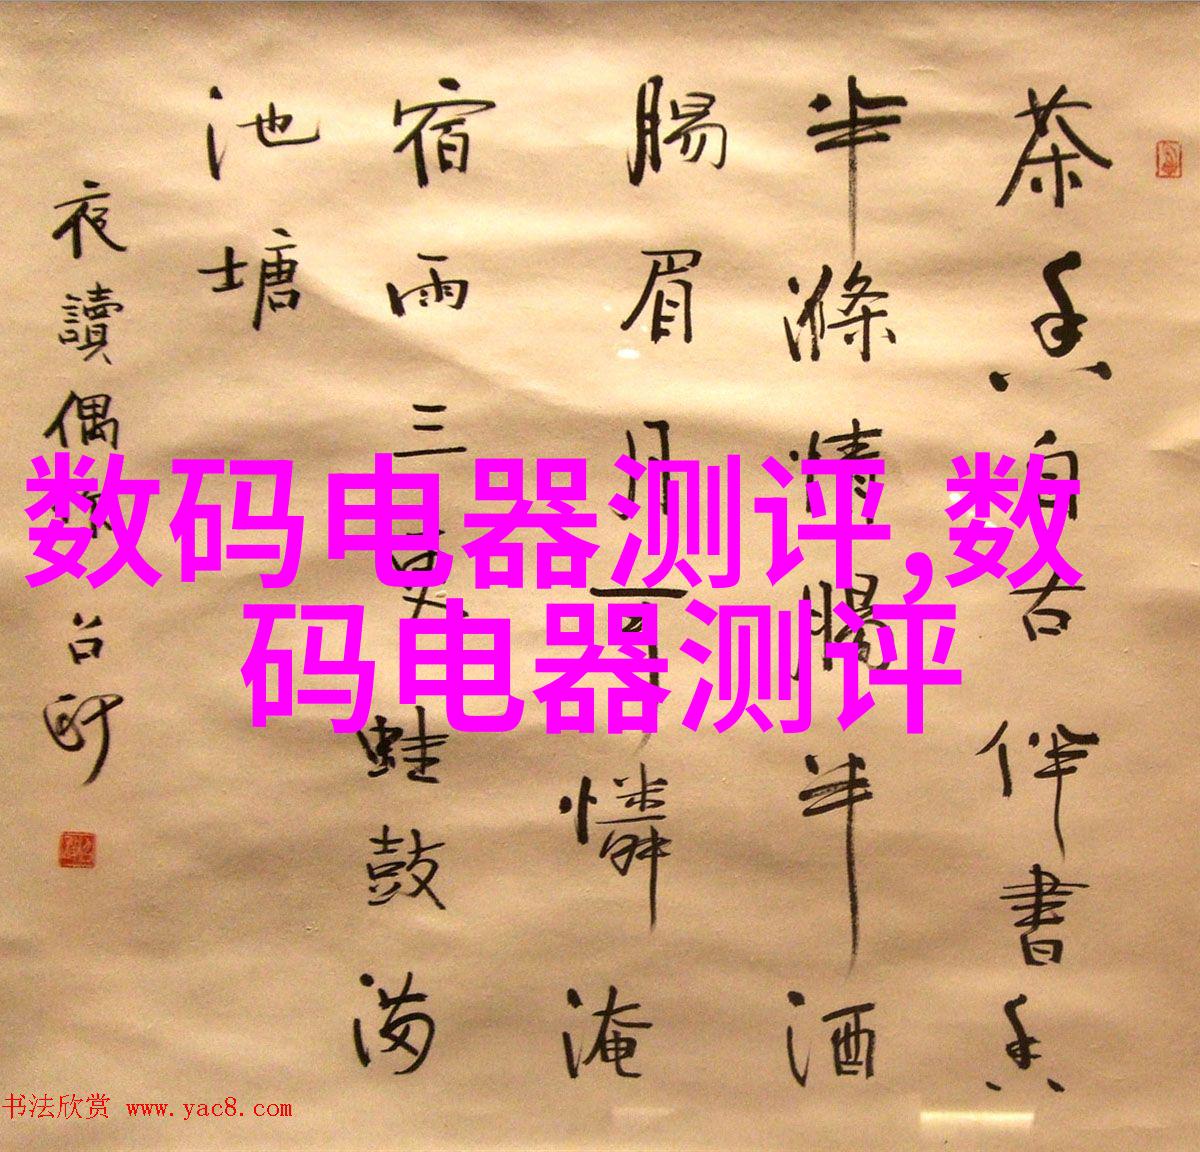 茶香自古伴書香
半滌情腸半酒
腸眉月可憐淹
宿雨三更蛙鼓满
池塘
夜讀偶
数码电器测评,数
码电器测评
书法欣赏 www.yac8.com